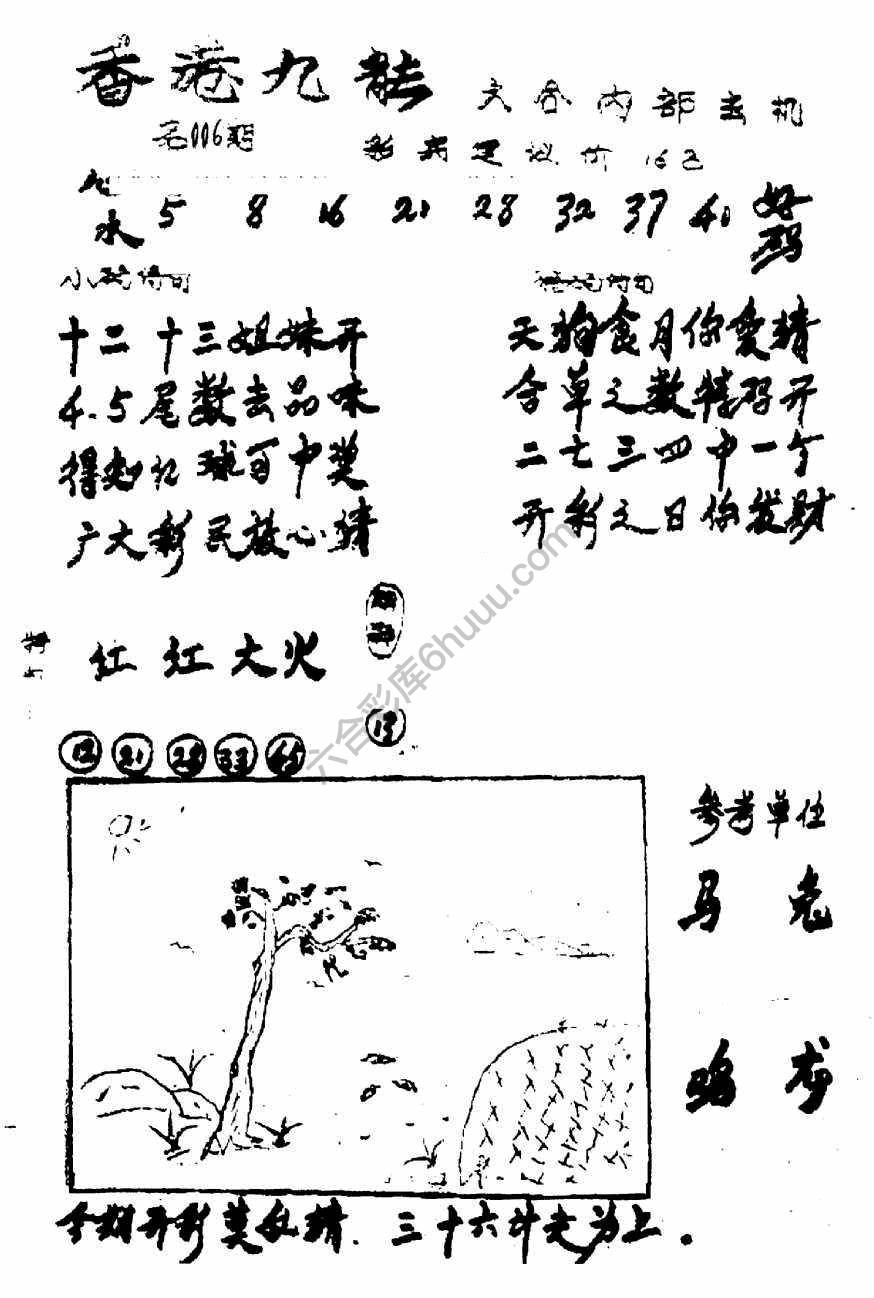 香港九龙
六合内部玄机
第006期
彩票建议价16元
水 5 8 16 21 28 32 37 41 好码
十二十三姐妹开
4.5尾数去品味
得到红球百中奖
广大彩民放心猜
天狗食月你爱猜
合单之数特码开
二七三四中一个
开彩之日你发财
红红大火
12 21 28 33 45
19
参考单位
马 兔
鸡 龙
今期开彩莫乱猜.三十六计走为上。
六合彩库6huuu.com